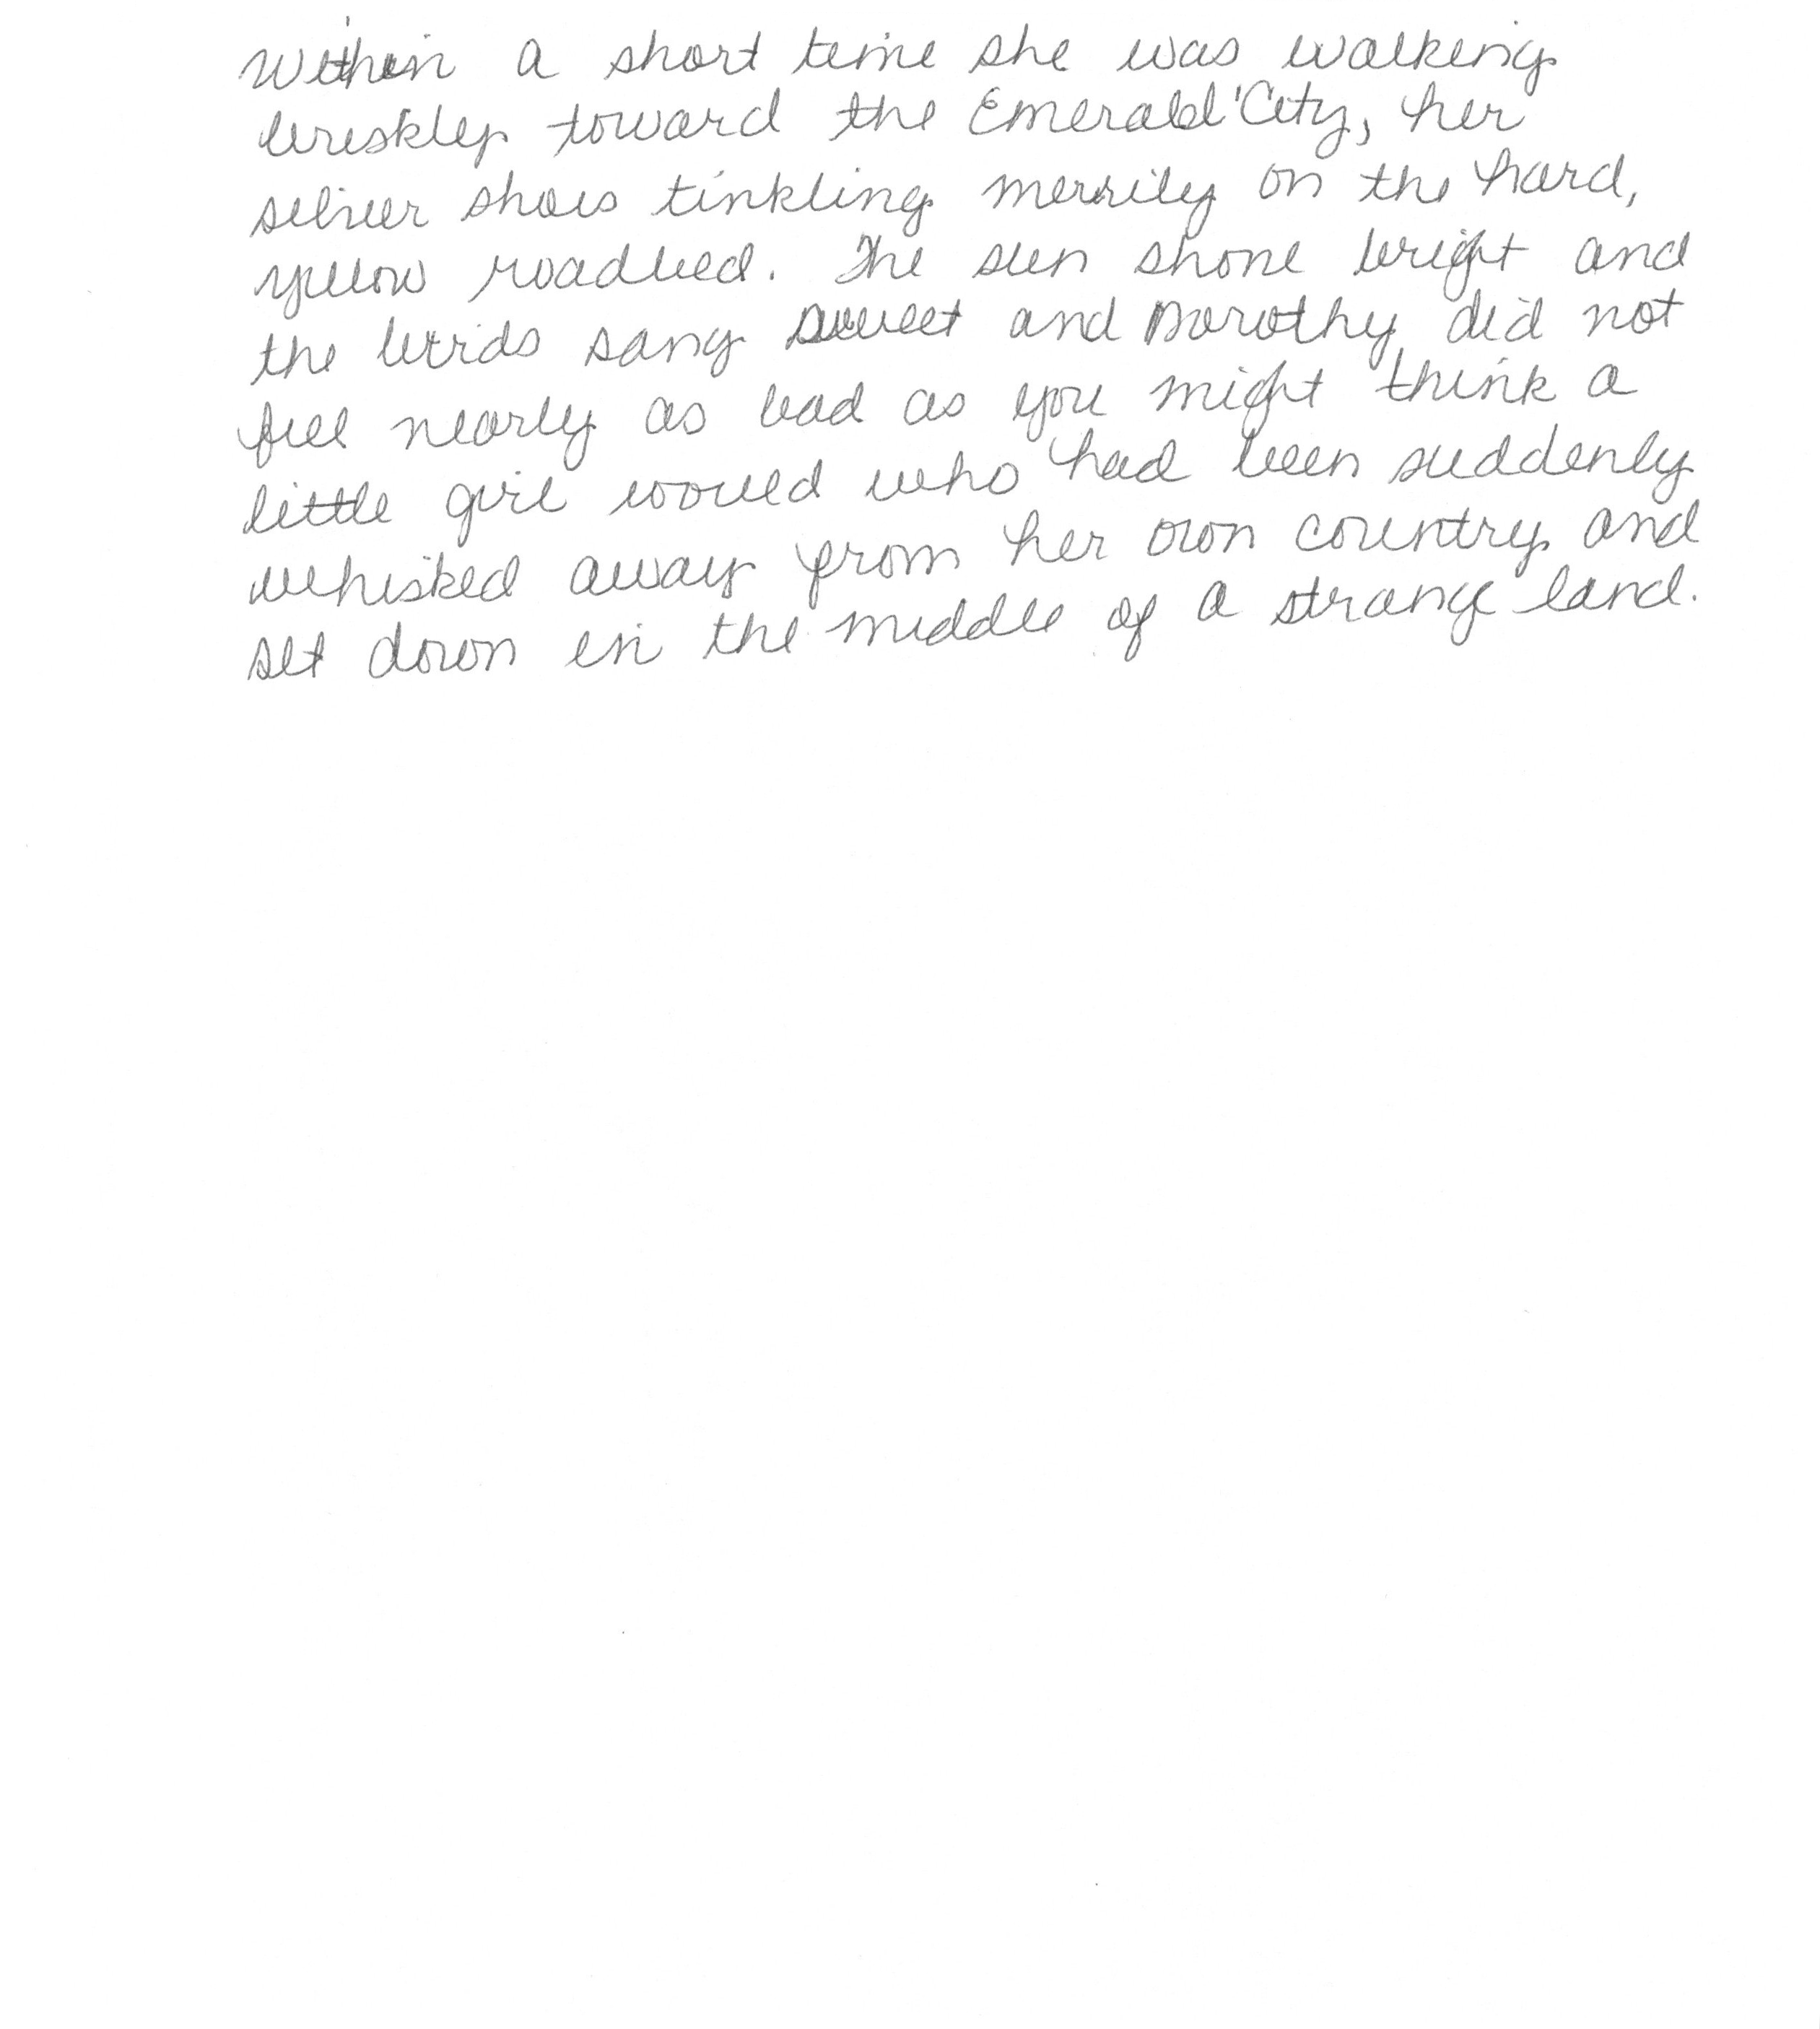 Within a short time she was walking
briskly toward the Emerald City, her
silver shoes tinkling merrily on the hard,
yellow roadbed. The sun shone bright and
the birds sang sweet and Dorothy did not
feel nearly as bad as you might think a
little girl would who had been suddenly
whisked away from her own country and
set down in the middle of a strange land.